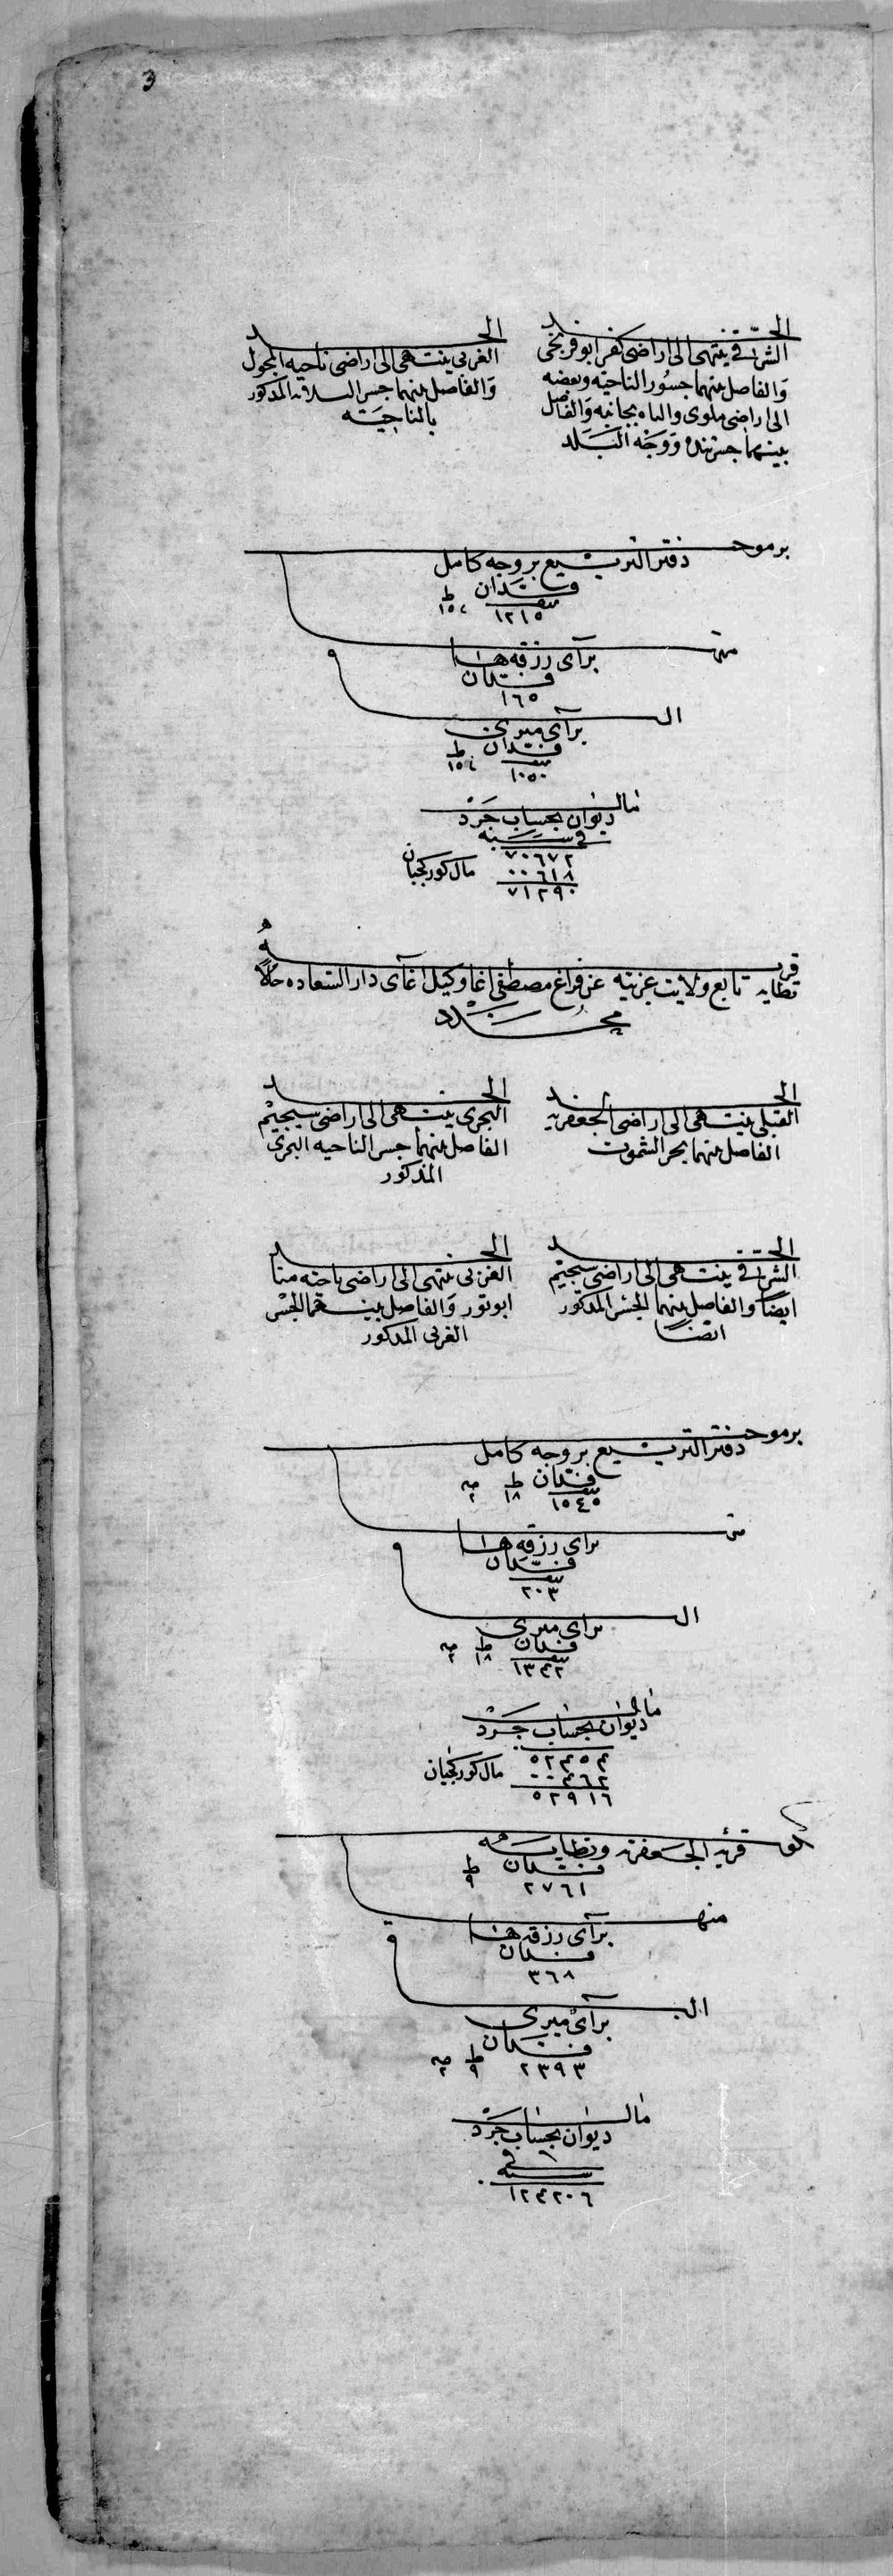 3
الحد
الشرقي ينتهى الى اراضى كفر ابو قربخى
والفاصل منهما جسور الناحيه وبعضه
الى اراضى ملوى والباه بجانبه والفاصل
بينهما جسر وجه البلد
الحد
الغربى ينتهى الى اراضى ناحيه
والفاصل منهما جسر المذكور
بالناحيه
برموجب دفتر التربيع بروجه كامل
فدان
١٢١٥ ط
منها
براى رزقه ها
فدان
١٦٥
الباقى
براى ميرى
فدان
١٠٥٠ ط
مال
ديوان بحساب جرد
فى سنه
٧٠٦٧٢
٠٠٦١٨ مال كوركجيان
٧١٢٩٠
قريه
نطايه تابع ولايت غربيه عن فراغ مصطفى اغا وكيل اغاى دار السعاده حالا
الحد
القبلى ينتهى الى اراضى الجعفريه
الفاصل منهما بحر
الحد
البحرى ينتهى الى اراضى سيجيم
الفاصل منهما جسر الناحيه البحرى
المذكور
الحد
الشرقى ينتهى الى اراضى سيجيم
ايضا والفاصل منهما الجسر المذكور
ايضا
الحد
الغربى ينتهى الى اراضى ناحيه
والفاصل بينهما الجسر
الغربى المذكور
برموجب دفتر التربيع بروجه كامل
فدان
١٥٤٥ ط ١٨
منها
براى رزقه ها
فدان
٢٠٣
الباقى
براى ميرى
فدان
١٣٤٢ ط ١٨
مال
ديوان بحساب جرد
٥٢٤٥٤
٠٠٤٦٢ مال كوركجيان
٥٢٩١٦
قريه الجعفريه ونطايه
فدان
٢٧٦١ ط ٩
منها
براى رزقه ها
فدان
٣٦٨
الباقى
براى ميرى
فدان
٢٣٩٣ ط ٩
مال
ديوان بحساب جرد
فى
سنه
١٢٤٢٠٦